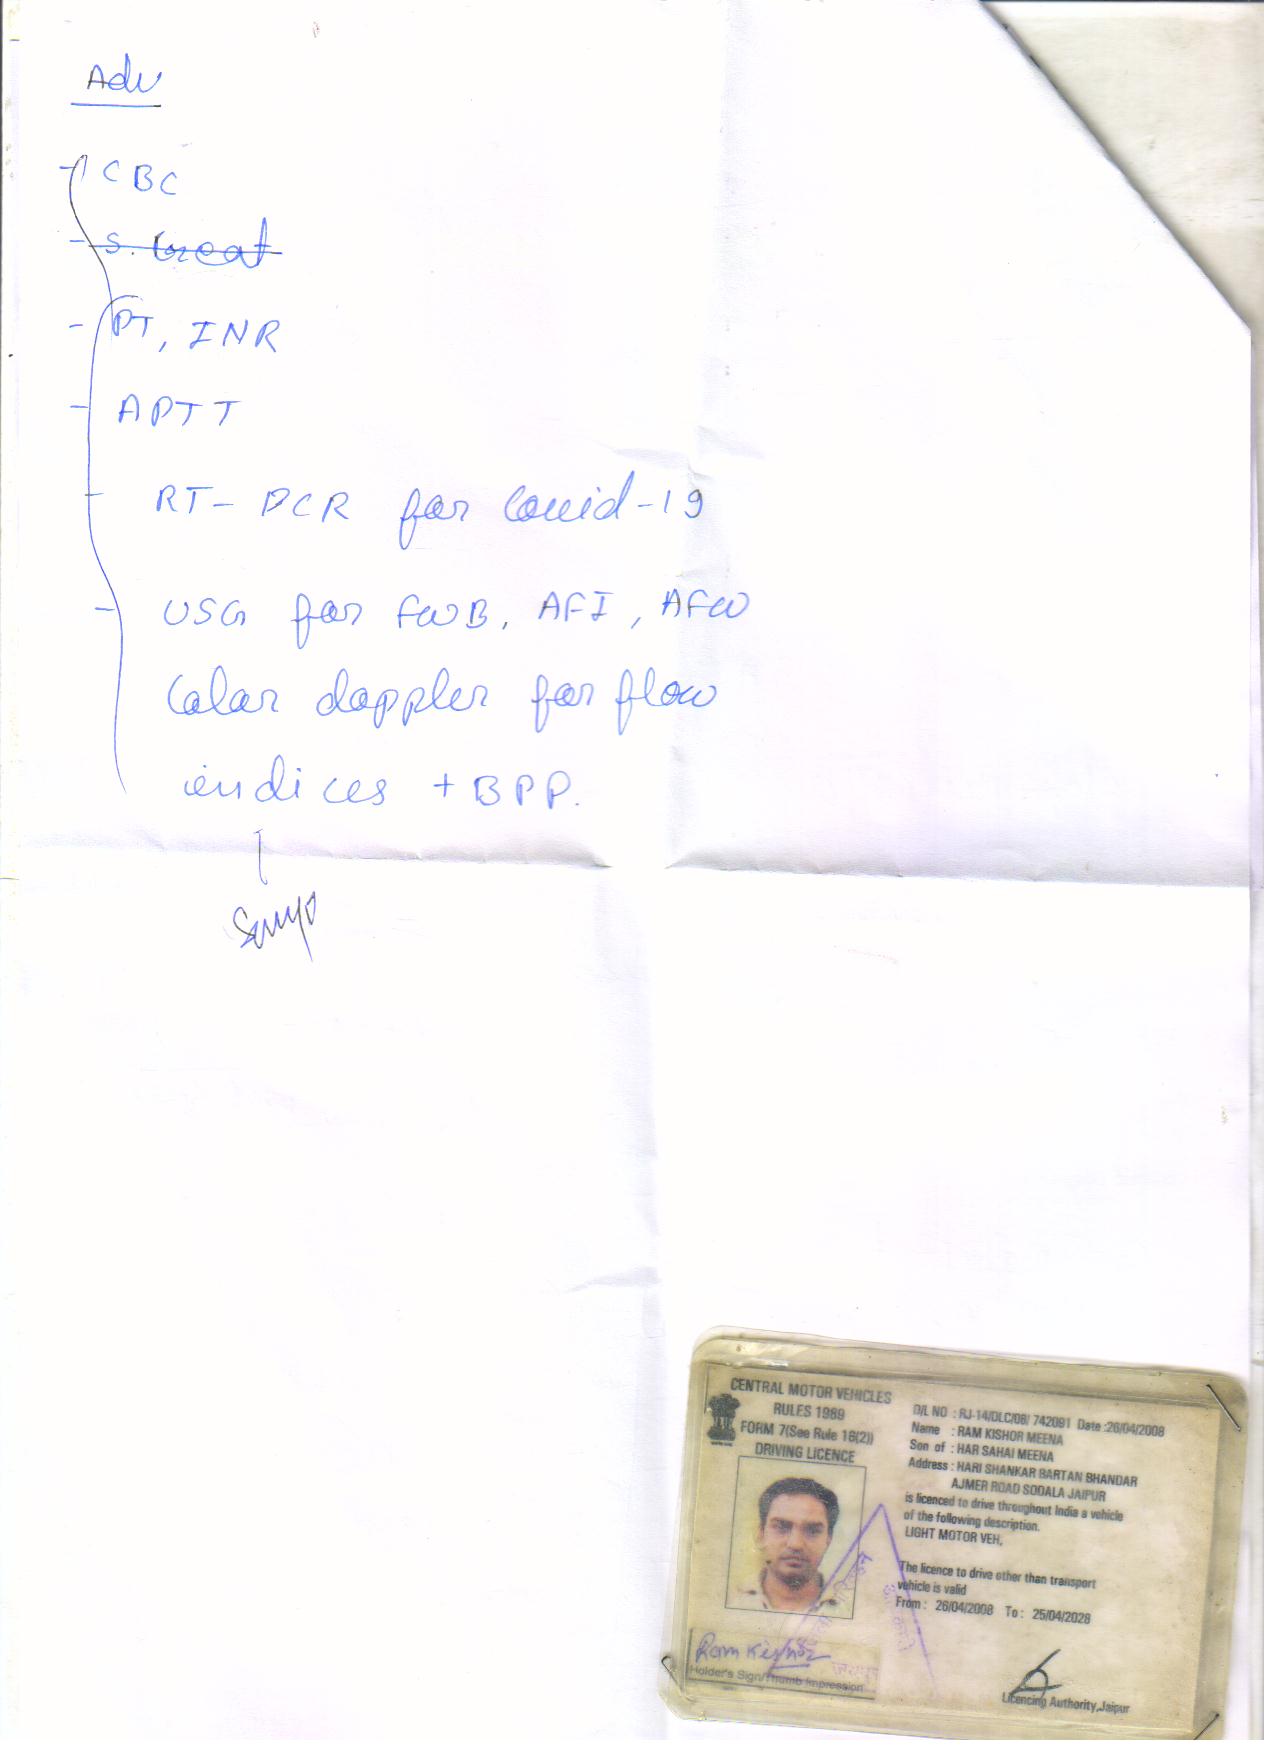 Adv
- CBC
- S. Creat
- PT, INR
- APTT
- RT-PCR for Covid-19
- USG for FWB, AFI, AFW
Color doppler for flow
indices + BPP.
CENTRAL MOTOR VEHICLES
RULES 1989
FORM 7(See Rule 16(2))
DRIVING LICENCE
D/L NO : RJ-14/DLC/08/ 742091 Date :26/04/2008
Name : RAM KISHOR MEENA
Son of : HAR SAHAI MEENA
Address : HARI SHANKAR BARTAN BHANDAR
AJMER ROAD SODALA JAIPUR
is licenced to drive throughout India a vehicle
of the following description.
LIGHT MOTOR VEH,
The licence to drive other than transport
vehicle is valid
From : 26/04/2008 To : 25/04/2028
Ram Kishor
Holder's Sign/Thumb Impression
Licencing Authority,Jaipur